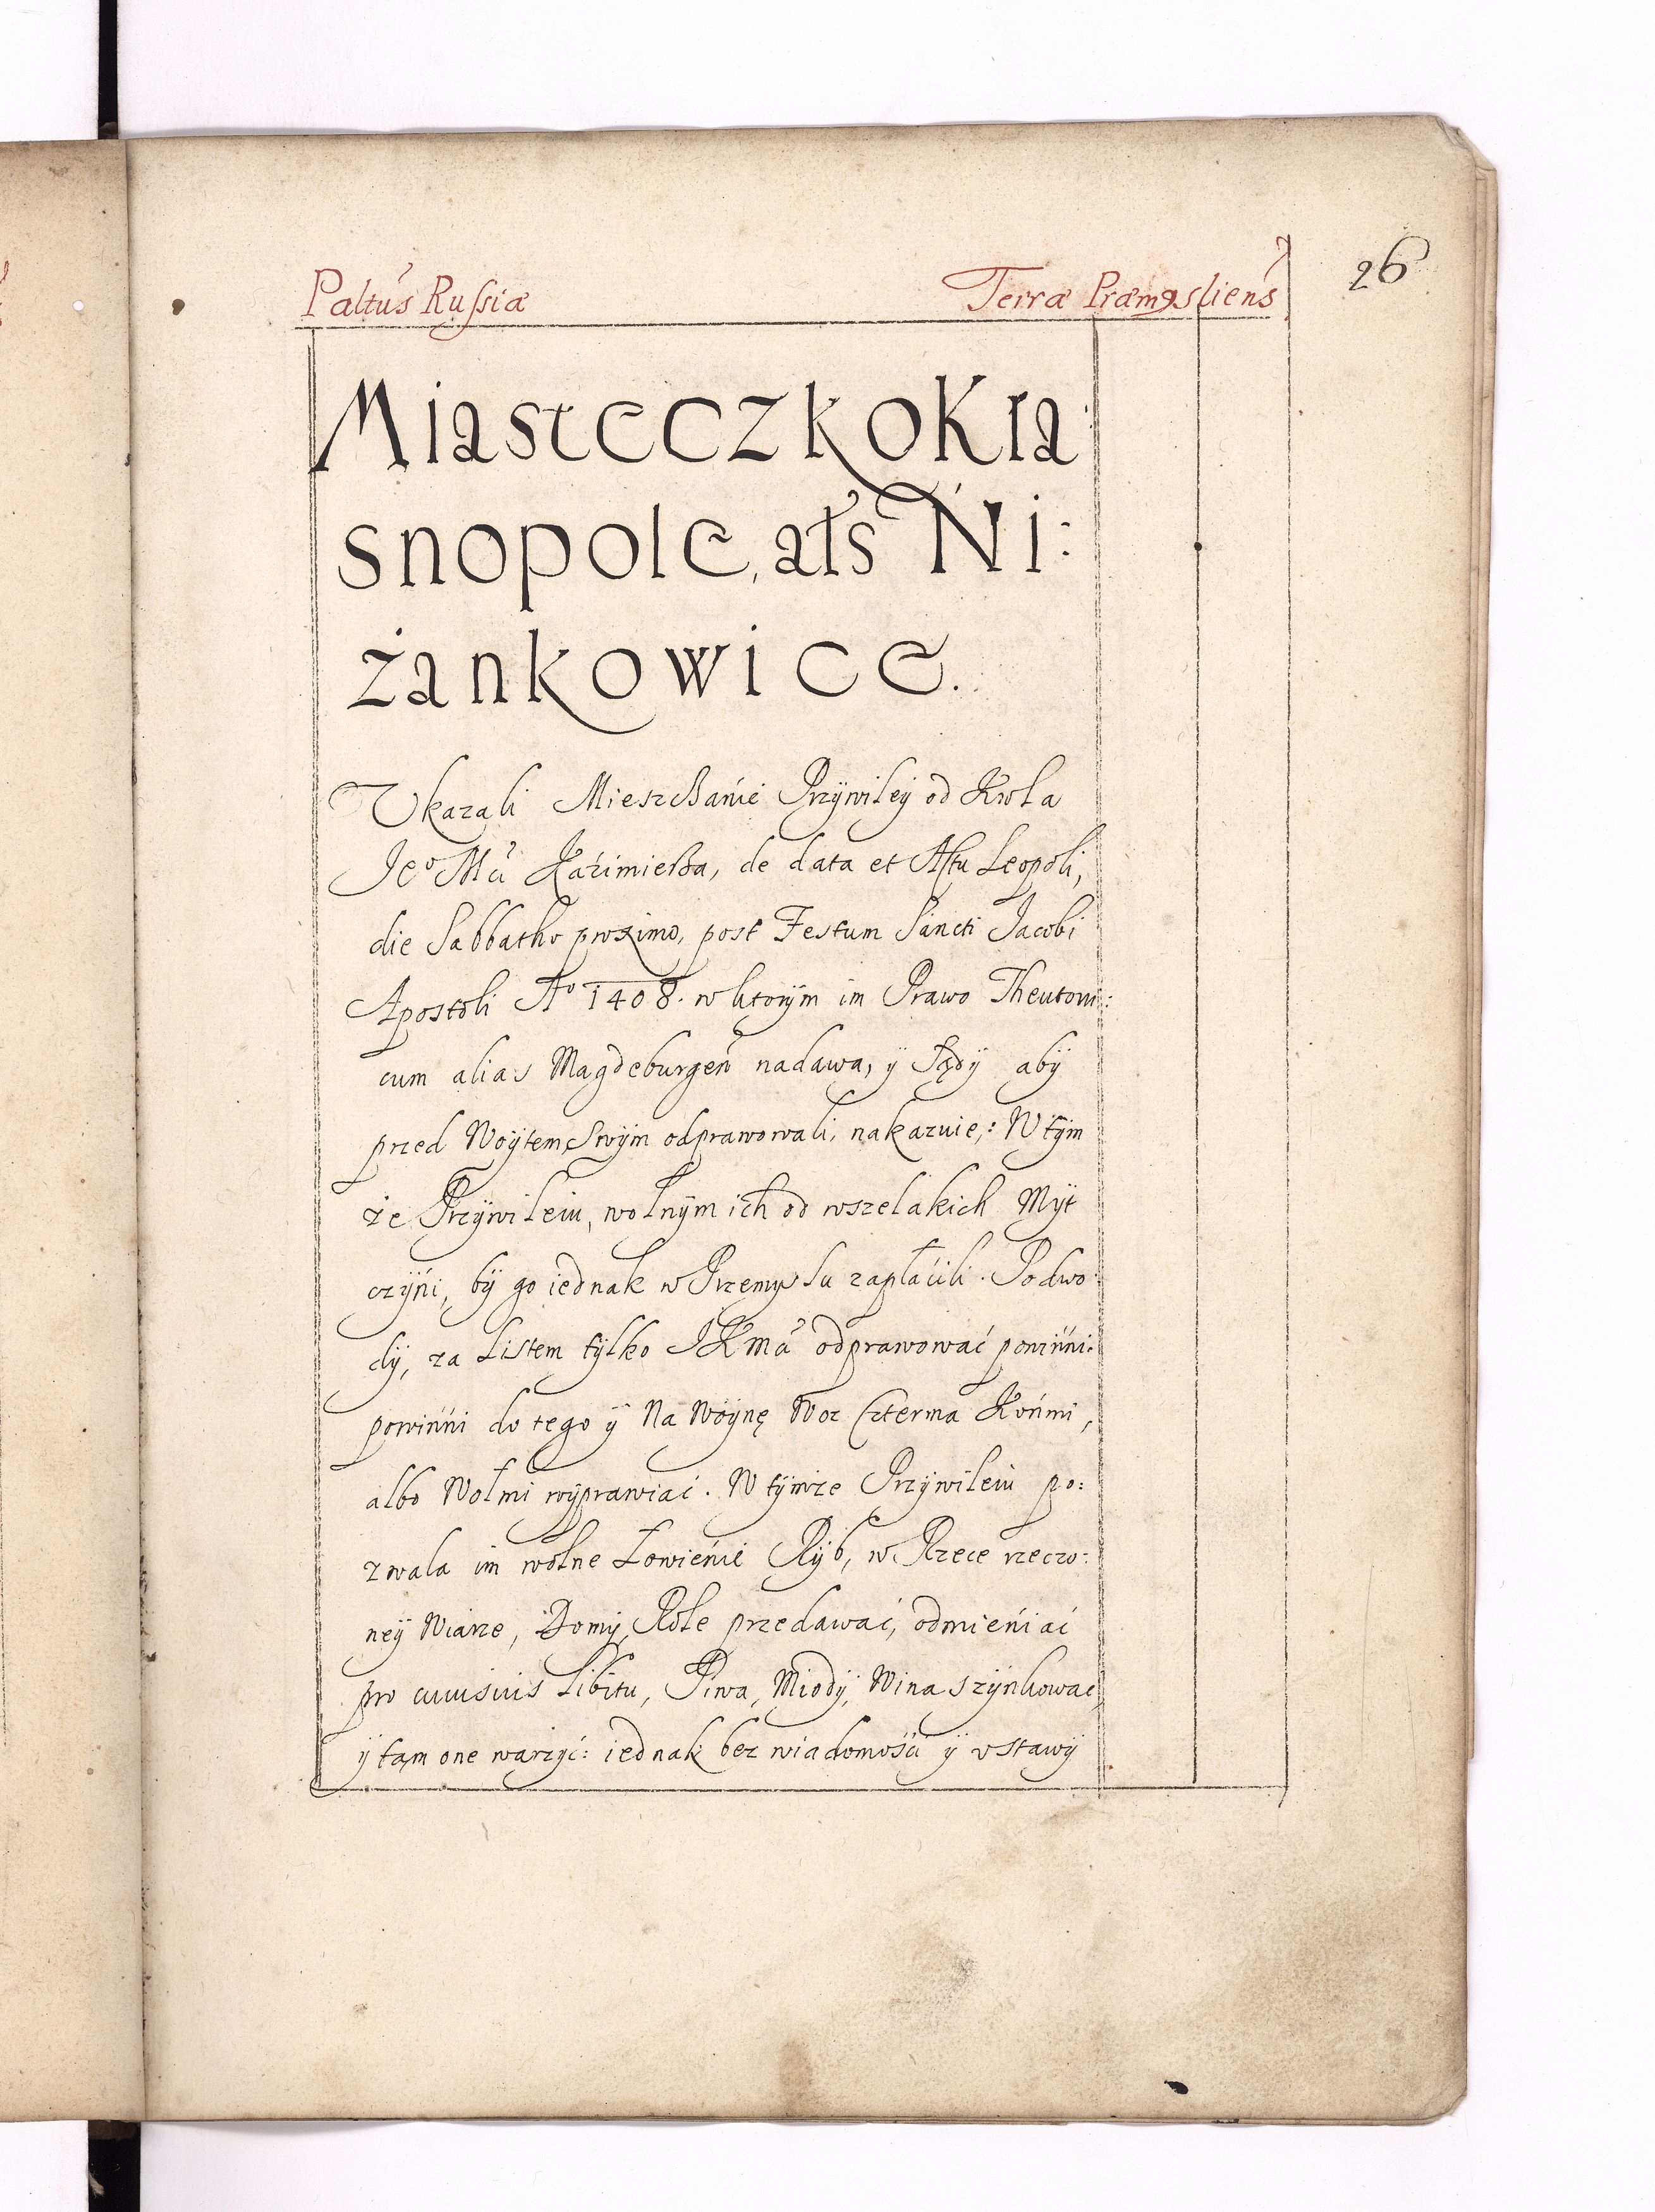 Paltus Russiæ
Terræ Præmysliens
26
Miasteczko Kra
snopole, als Ni:
żankowice.
Vkazali Mieszczanie Przywiley od Krola
Jeo Mci Kazimierza, de data et Actu Leopoli,
die Sabbatho proximo, post Festum Sancti Jacobi
Apostoli Ao 1408. w ktorym im Prawo Theutoni:
cum alias Magdeburgen nadawa, ÿ Sądÿ abÿ
przed Woÿtem Swÿm odprawowali, nakazuie,: W tÿm
że Przÿwileiu, wolnÿm ich od wszelakich Mÿt
czÿni, bÿ go iednak w Przemyslu zapłaćili. Podwo:
dÿ, za Listem tÿlko JKMci odprawować powinni:
powinni do tego ÿ Na Woÿnę Woz Czterma Końmi,
albo Wołmi wÿprawiać. W tÿmże Przÿwileiu po:
zwala im wolne Łowienie Rÿb, w Rzece rzeczo:
neÿ Wiarze, Domÿ, Role przedawać, odmieniać
pro cuiusuis Libitu, Piwa, Miodÿ, Wina szÿnkować,
ÿ tam one warzÿć: iednak bez wiadomośći ÿ vstawÿ